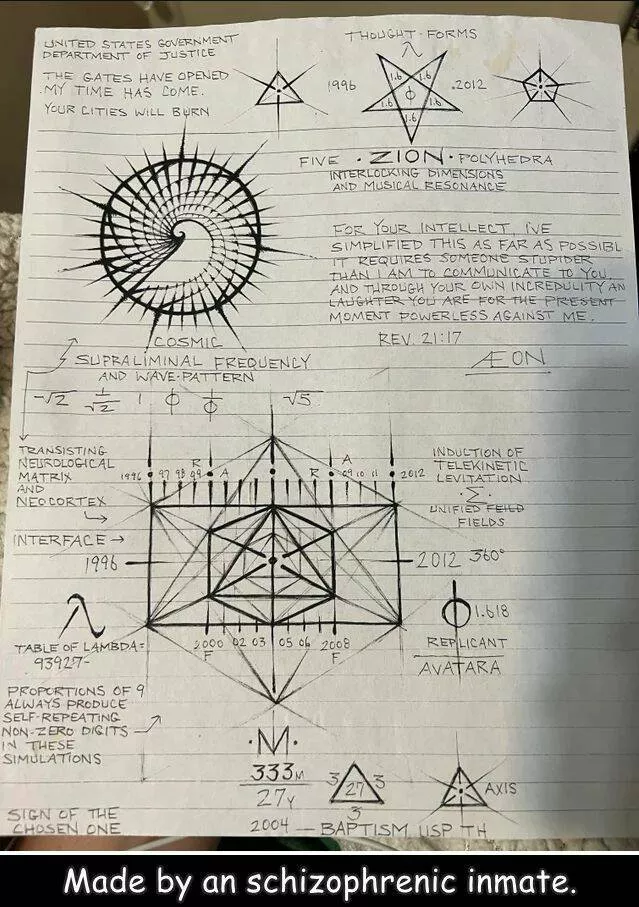 UNITED STATES GOVERNMENT
DEPARTMENT OF JUSTICE
THE GATES HAVE OPENED
MY TIME HAS COME.
YOUR CITIES WILL BURN
THOUGHT-FORMS
1996
1.6 1.6
ϕ
1.6 1.6
1.6
.2012
FIVE • ZION • POLYHEDRA
INTERLOCKING DIMENSIONS
AND MUSICAL RESONANCE
FOR YOUR INTELLECT, I'VE
SIMPLIFIED THIS AS FAR AS POSSIBL
IT REQUIRES SOMEONE STUPIDER
THAN I AM TO COMMUNICATE TO YOU
AND THROUGH YOUR OWN INCREDULITY AN
LAUGHTER YOU ARE FOR THE PRESENT
MOMENT POWERLESS AGAINST ME.
REV. 21:17
ÆON
COSMIC
SUPRALIMINAL FREQUENCY
AND WAVE-PATTERN
-√2 1/√2 1 ϕ 1/ϕ √5
TRANSISTING
NEUROLOGICAL
MATRIX
AND
NEOCORTEX
INTERFACE →
1996
R A R A
1996 • 97 98 99 • • • 09 10 11 • 2012
INDUCTION OF
TELEKINETIC
LEVITATION
·Σ·
UNIFIED FEILD
FIELDS
2012 360°
λ
TABLE OF LAMBDA=
93927-
2000 02 03 05 06 2008
F F
ϕ 1.618
REPLICANT
AVATARA
PROPORTIONS OF 9
ALWAYS PRODUCE
SELF-REPEATING
NON-ZERO DIGITS
IN THESE
SIMULATIONS
·M·
333M
27Y
3 27 3
3
AXIS
SIGN OF THE
CHOSEN ONE
2004 — BAPTISM USP TH
Made by an schizophrenic inmate.